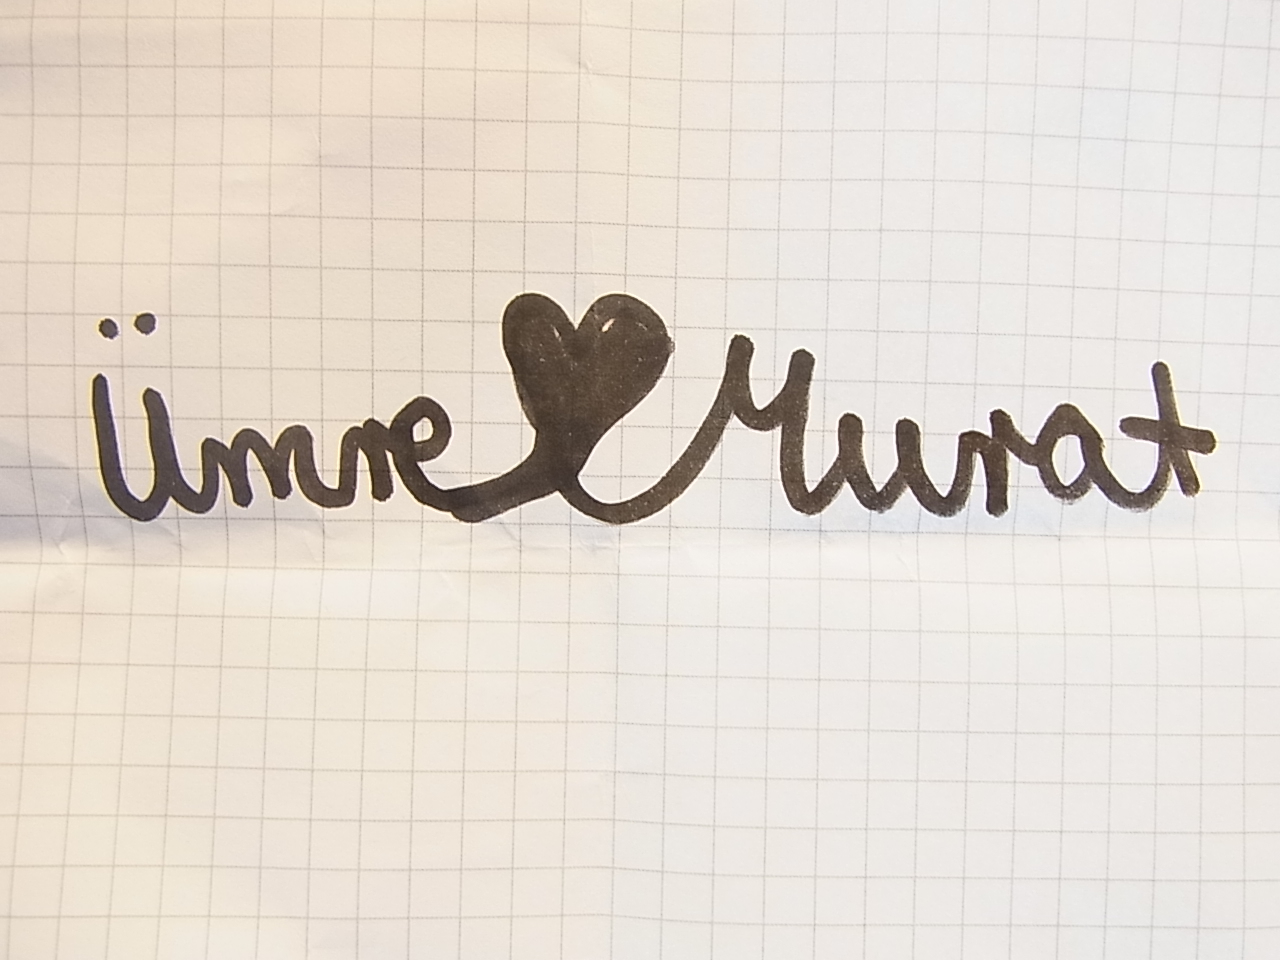 Ümre Murat